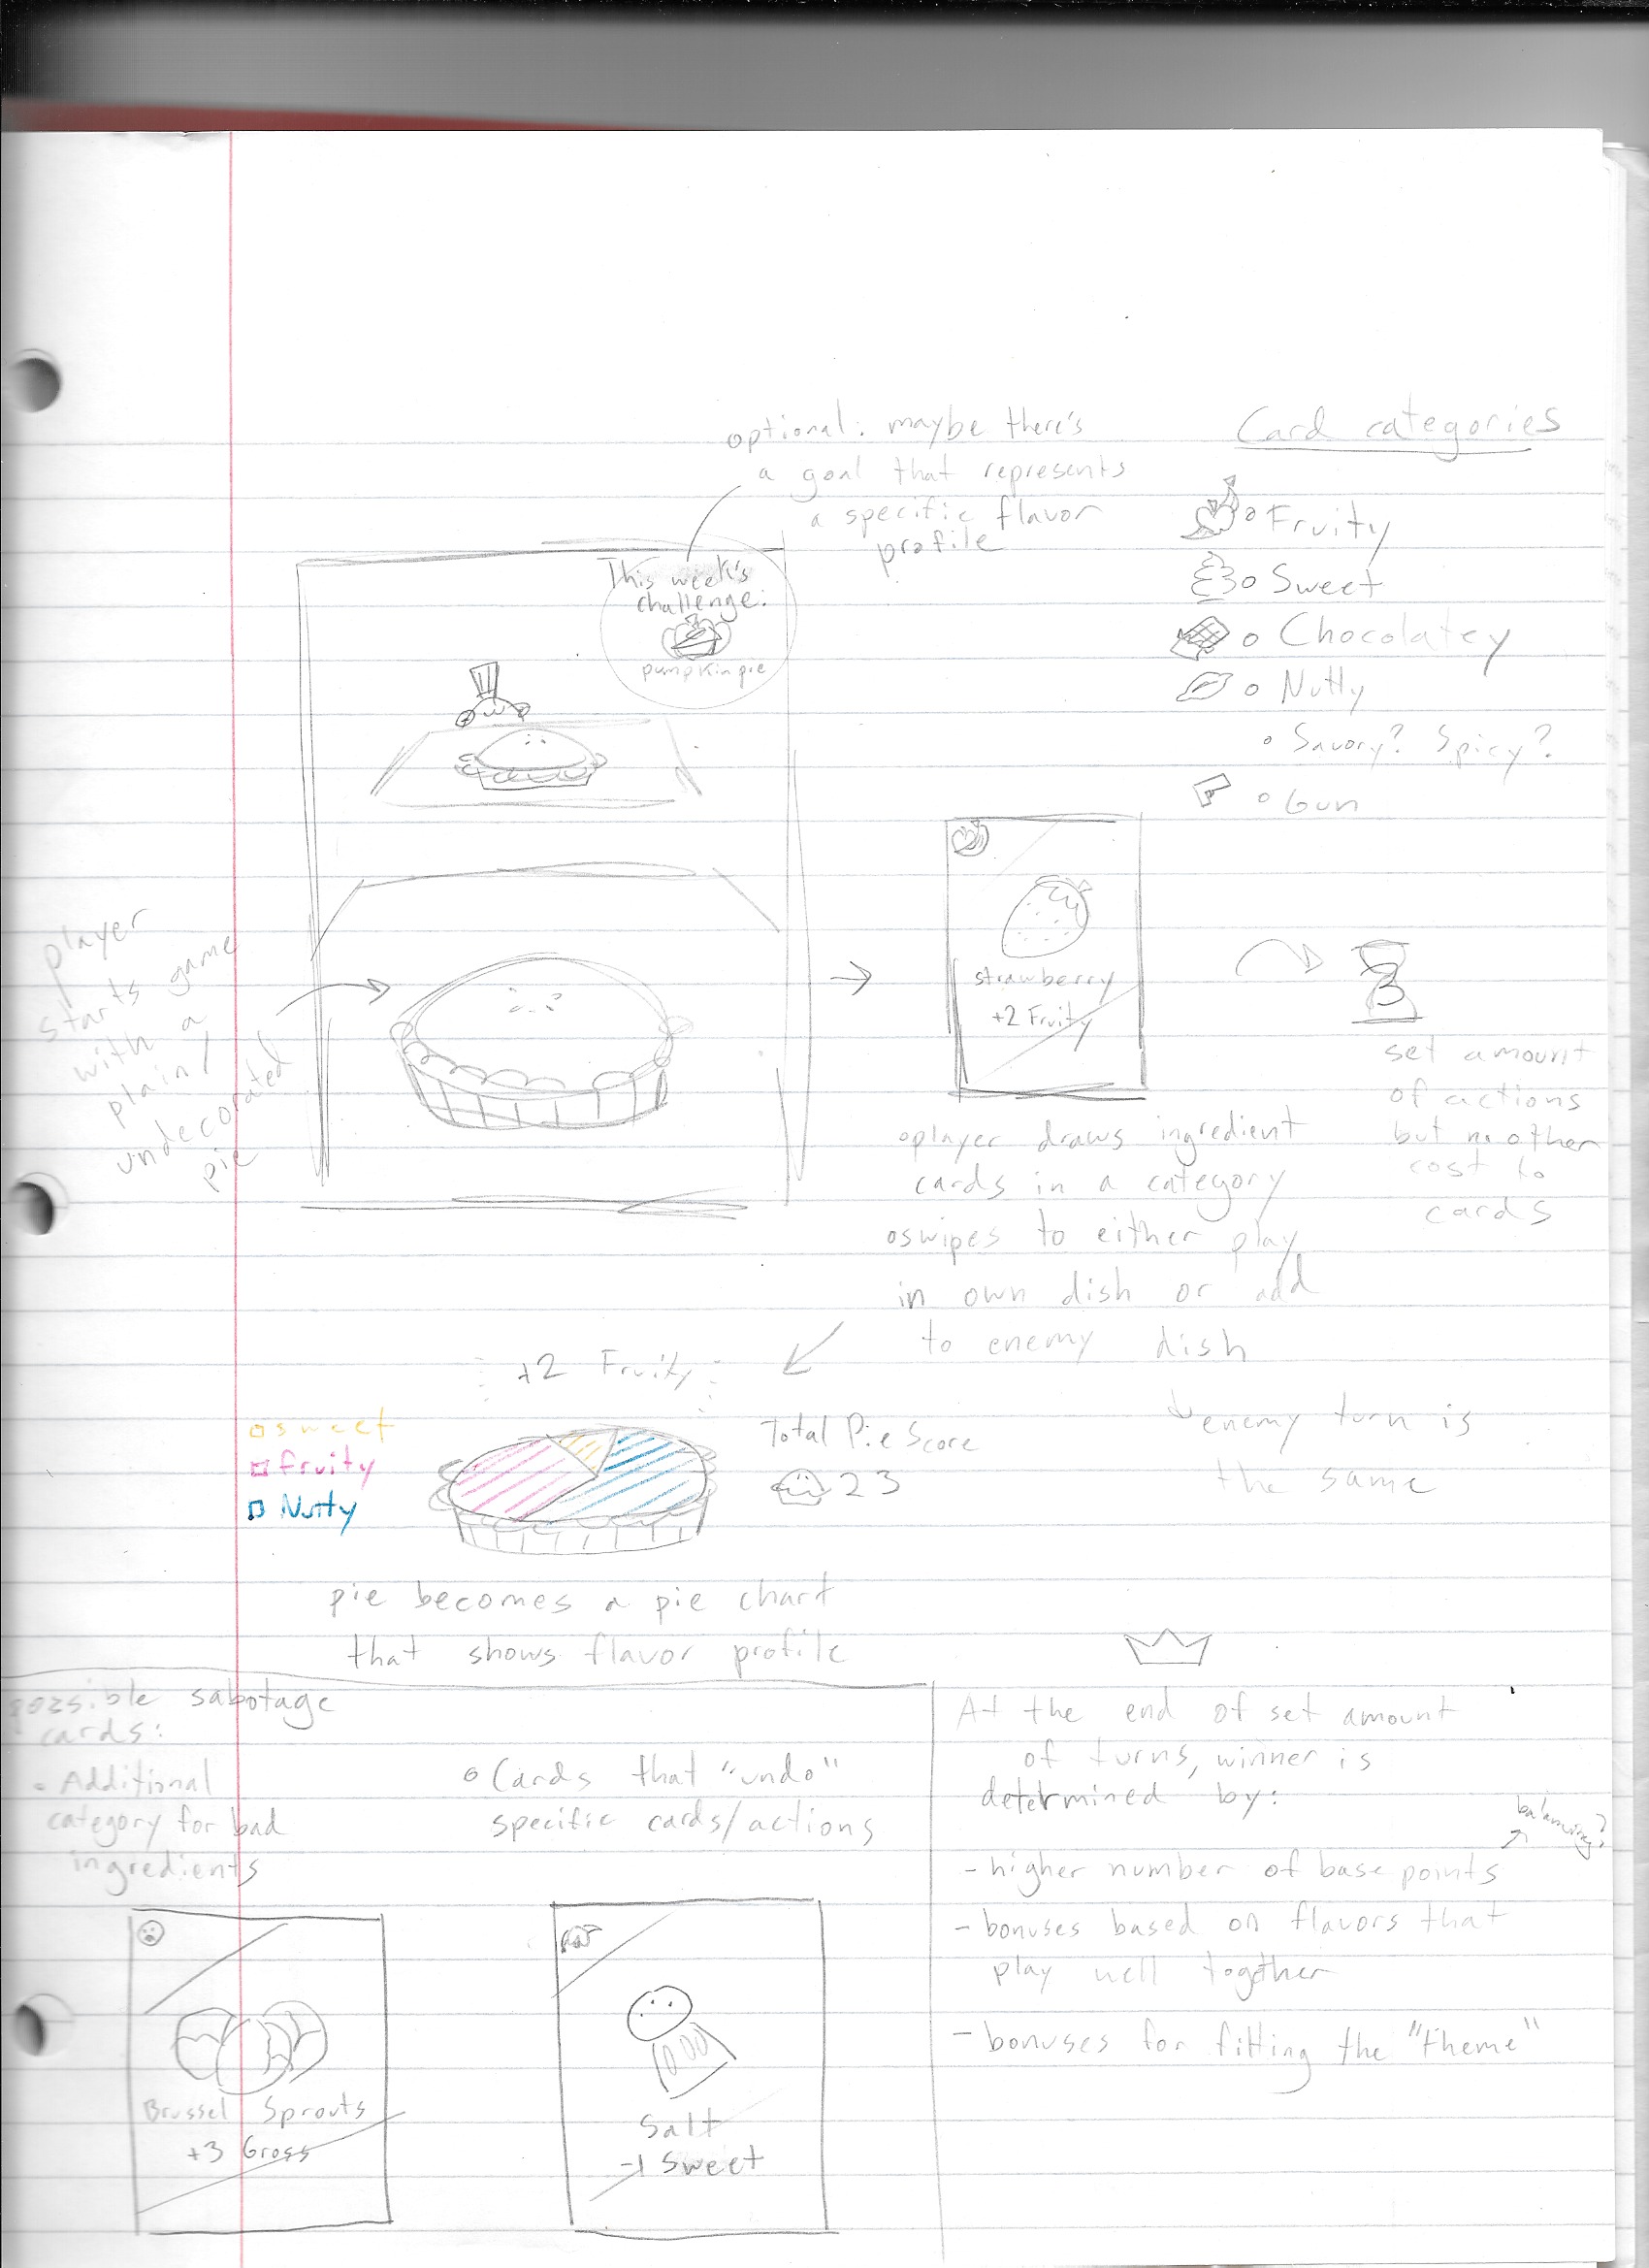 optional: maybe there's
a goal that represents
a specific flavor
profile
Card categories
Fruity
Sweet
Chocolatey
Nutty
Savory? Spicy?
Gun
This week's
challenge:
pumpkin pie
player
starts game
with a
plain/
undecorated
pie
strawberry
+2 Fruity
3
set amount
of actions
but no other
cost to
cards
player draws ingredient
cards in a category
swipes to either play
in own dish or add
to enemy dish
enemy turn is
the same
+2 Fruity
sweet
fruity
Nutty
Total Pie Score
23
pie becomes a pie chart
that shows flavor profile
possible sabotage
cards:
Additional
category for bad
ingredients
Cards that "undo"
specific cards/actions
Brussel Sprouts
+3 Gross
Salt
-1 Sweet
At the end of set amount
of turns, winner is
determined by:
balancing?
- higher number of base points
- bonuses based on flavors that
play well together
- bonuses for fitting the "theme"